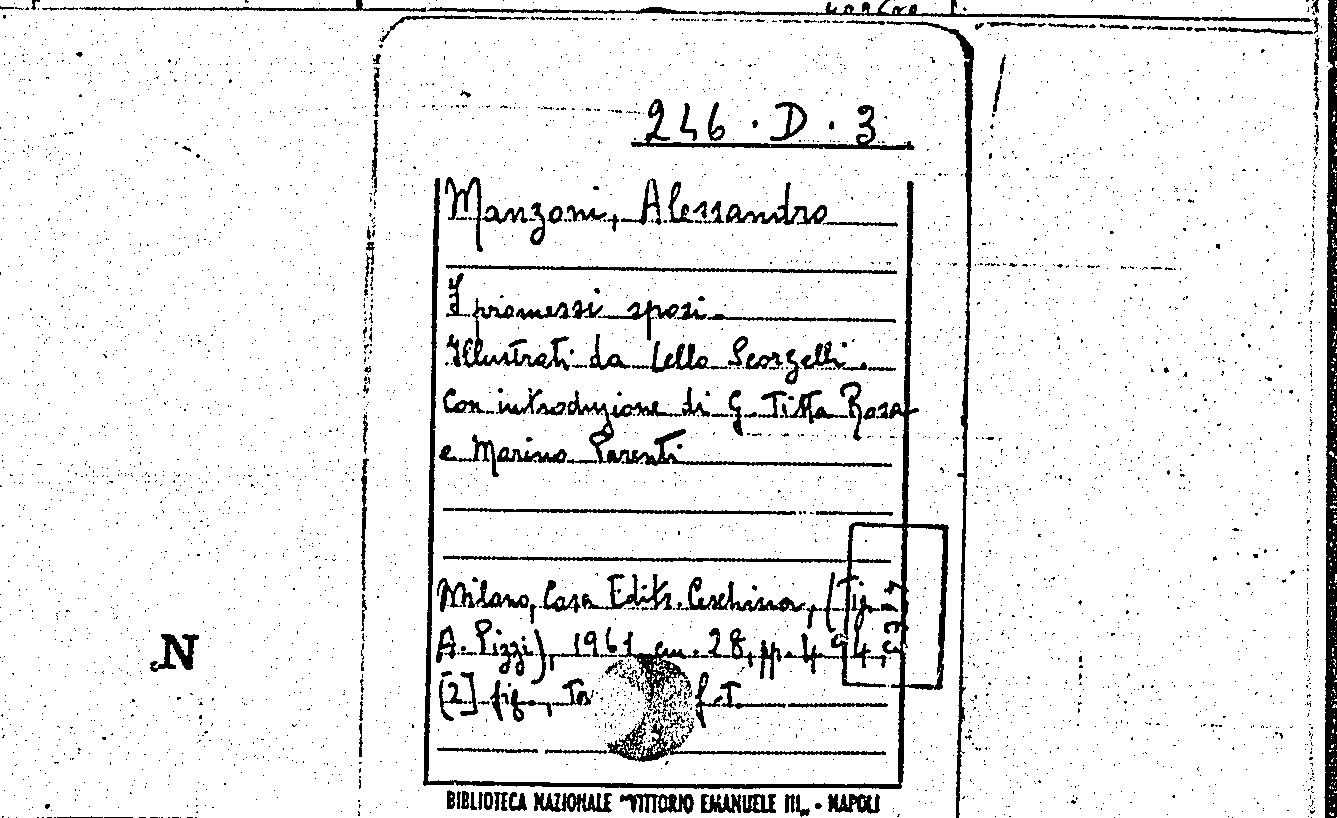 246 · D · 3
Manzoni, Alessandro
I promessi sposi.
Illustrati da Lello Scorzelli.
Con introduzione di G. Titta Rosa
e Marino Parenti
Milano, Casa Editr. Ceschina, (Tip.
A. Pizzi), 1961 cm. 28, pp. 494,
[2] fig., f. t.
N
BIBLIOTECA NAZIONALE "VITTORIO EMANUELE III„ - NAPOLI